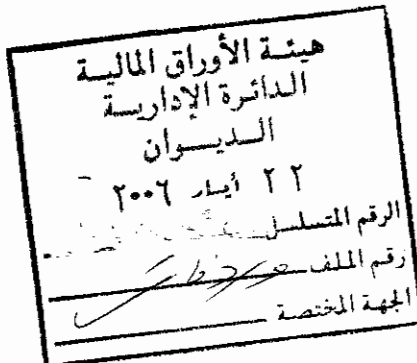 هيئة الأوراق المالية
الدائرة الإدارية
الديوان
٢٢ أيار ٢٠٠٦
الرقم المتسلسل
رقم الملف
الجهة المختصة